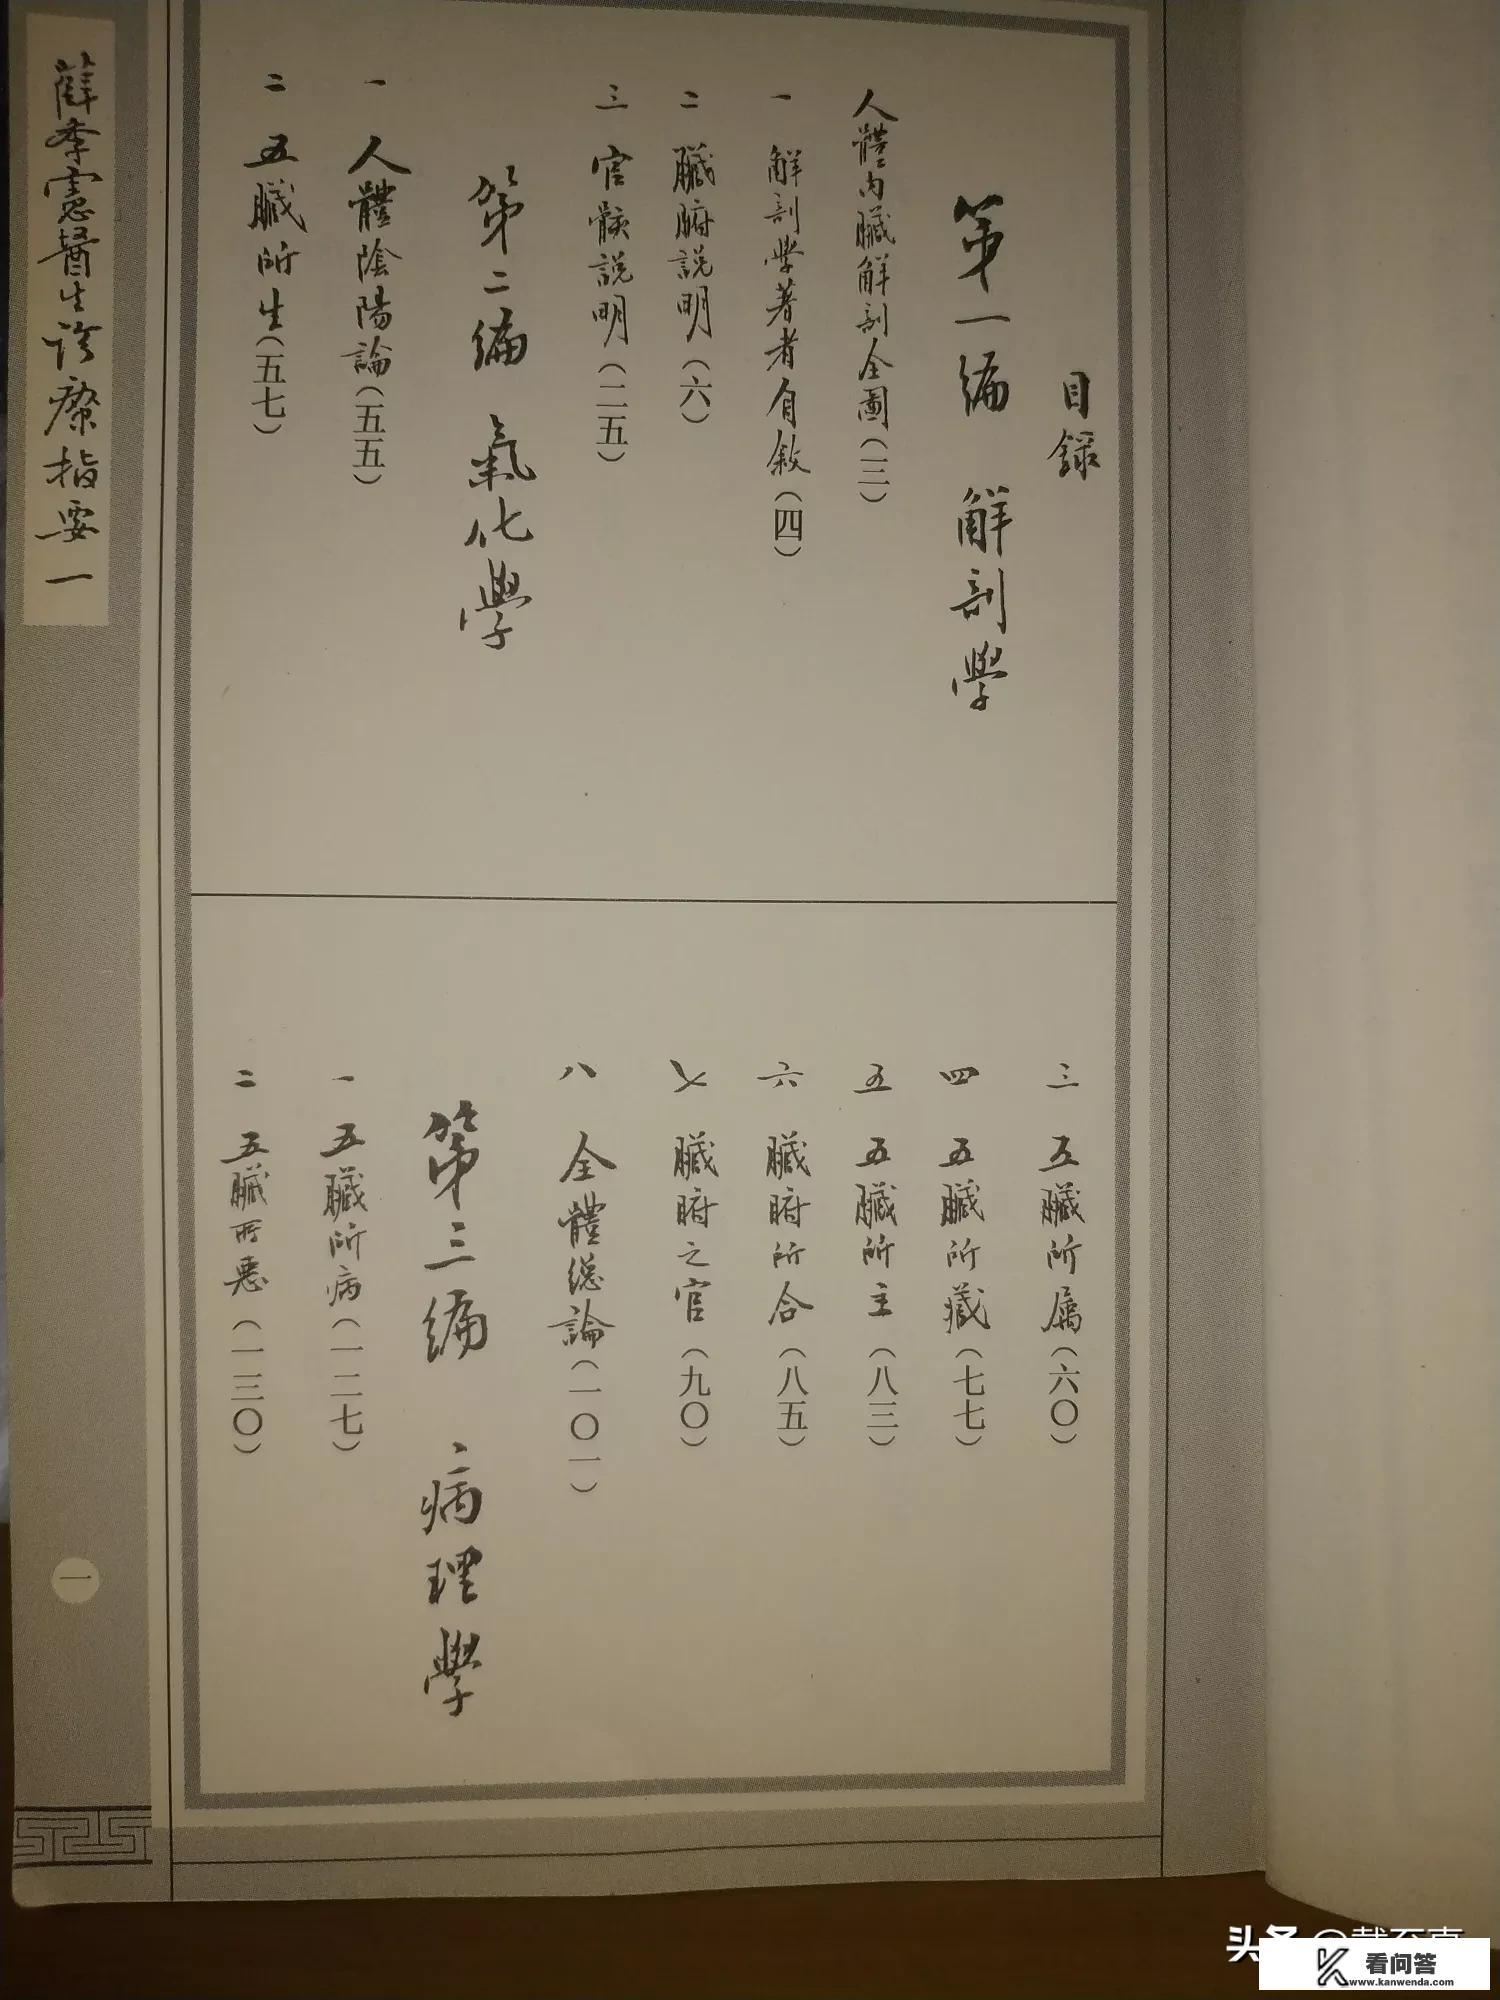 目錄
第一編 解剖學
人體內臟解剖全圖(三)
一 解剖學著者自敘(四)
二 臟腑說明(六)
三 官骸說明(二五)
第二編 氣化學
一 人體陰陽論(五五)
二 五臟所生(五七)
三 五臟所属(六〇)
四 五臟所藏(七七)
五 五臟所主(八三)
六 臟腑所合(八五)
七 臟腑之官(九〇)
八 全體總論(一〇一)
第三編 病理學
一 五臟所病(一二七)
二 五臟所惡(一三〇)
醫生診療指要一
一
头条 @戴至真
看问答
www.kanwenda.com